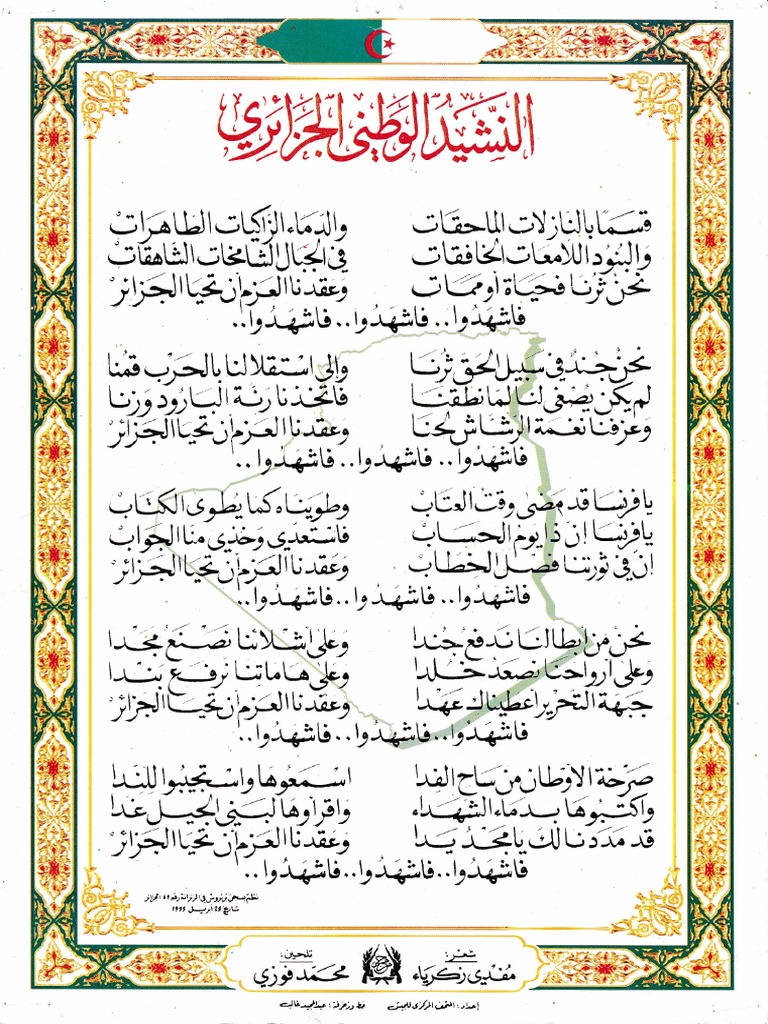 النّشيدُ الوَطني الجَزَائِري
قسَمًا بالنازلات الماحقات والدمَاء الزاكيات الطاهرات
وَالبنود اللامعات الخافقات في الجبَال الشامخات الشاهقات
نحن ثرنا فحيَاة أو ممات وعقدنا العزم ان تحيا الجزائر
فاشهَدُوا.. فاشهَدُوا.. فاشهَدُوا..
نحن جُندٌ في سَبيل الحق ثرنا وإلى استقلالنا بالحَرْب قمنا
لم يكن يصغى لنا لما نطقنا فاتخذنا رنة البارود وزنا
وعزفنا نغمة الرشاش لحنا وعقدنا العزم ان تحيا الجزائر
فاشهَدُوا.. فاشهَدُوا.. فاشهَدُوا..
يا فرنسا قد مضى وقت العتاب وطويناه كما يُطوى الكتاب
يا فرنسا إن ذا يوم الحساب فاستعدي وخذي منا الجواب
إن في ثورتنا فصل الخطاب وعقدنا العزم ان تحيا الجزائر
فاشهَدُوا.. فاشهَدُوا.. فاشهَدُوا..
نحن من أبطالنا ندفع جُندا وعلى أشلائنا نصنع مجدا
وعلى أرواحنا نصعد خلدا وعلى هاماتنا نرفع بندا
جبهة التحرير أعطيناك عهدا وعقدنا العزم ان تحيا الجزائر
فاشهَدُوا.. فاشهَدُوا.. فاشهَدُوا..
صرخة الأوطان من ساح الفدا اسمعُوها واستجيبُوا للندا
واكتبُوها بدماء الشهداء واقرأوها لبني الجيل غدا
قد مدَدنا لك يا مجد يدا وعقدنا العزم ان تحيا الجزائر
فاشهَدُوا.. فاشهَدُوا.. فاشهَدُوا..
نظم بسجن بربروس في الزنزانة رقم 69 الجزائر
تاريخ 25 أبريل 1955
شعر: تلحين:
مفدي زكرياء محمد فوزي
إعداد: المتحف المركزي للجيش خط وزخرفة: عبد المجيد غالب